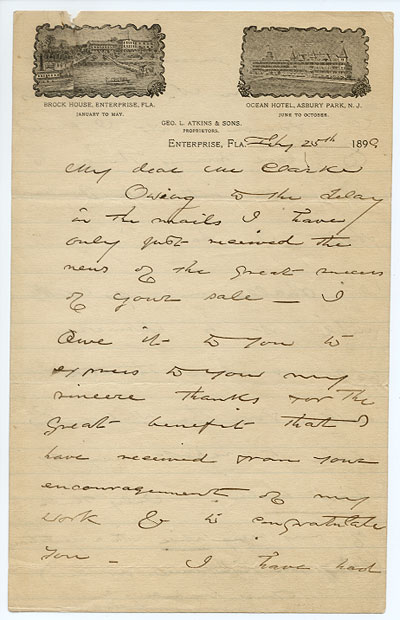 BROCK HOUSE, ENTERPRISE, FLA.
JANUARY TO MAY.
OCEAN HOTEL, ASBURY PARK, N. J.
JUNE TO OCTOBER.
GEO. L. ATKINS & SONS.
PROPRIETORS.
ENTERPRISE, FLA. Feby 25th 1899
My dear Mr Clarke
Owing to the delay
in the mails I have
only just received the
news of the great success
of your sale — I
owe it to you to
express to you my
sincere thanks for the
great benefit that I
have received from your
encouragement of my
work & to congratulate
you — I have had